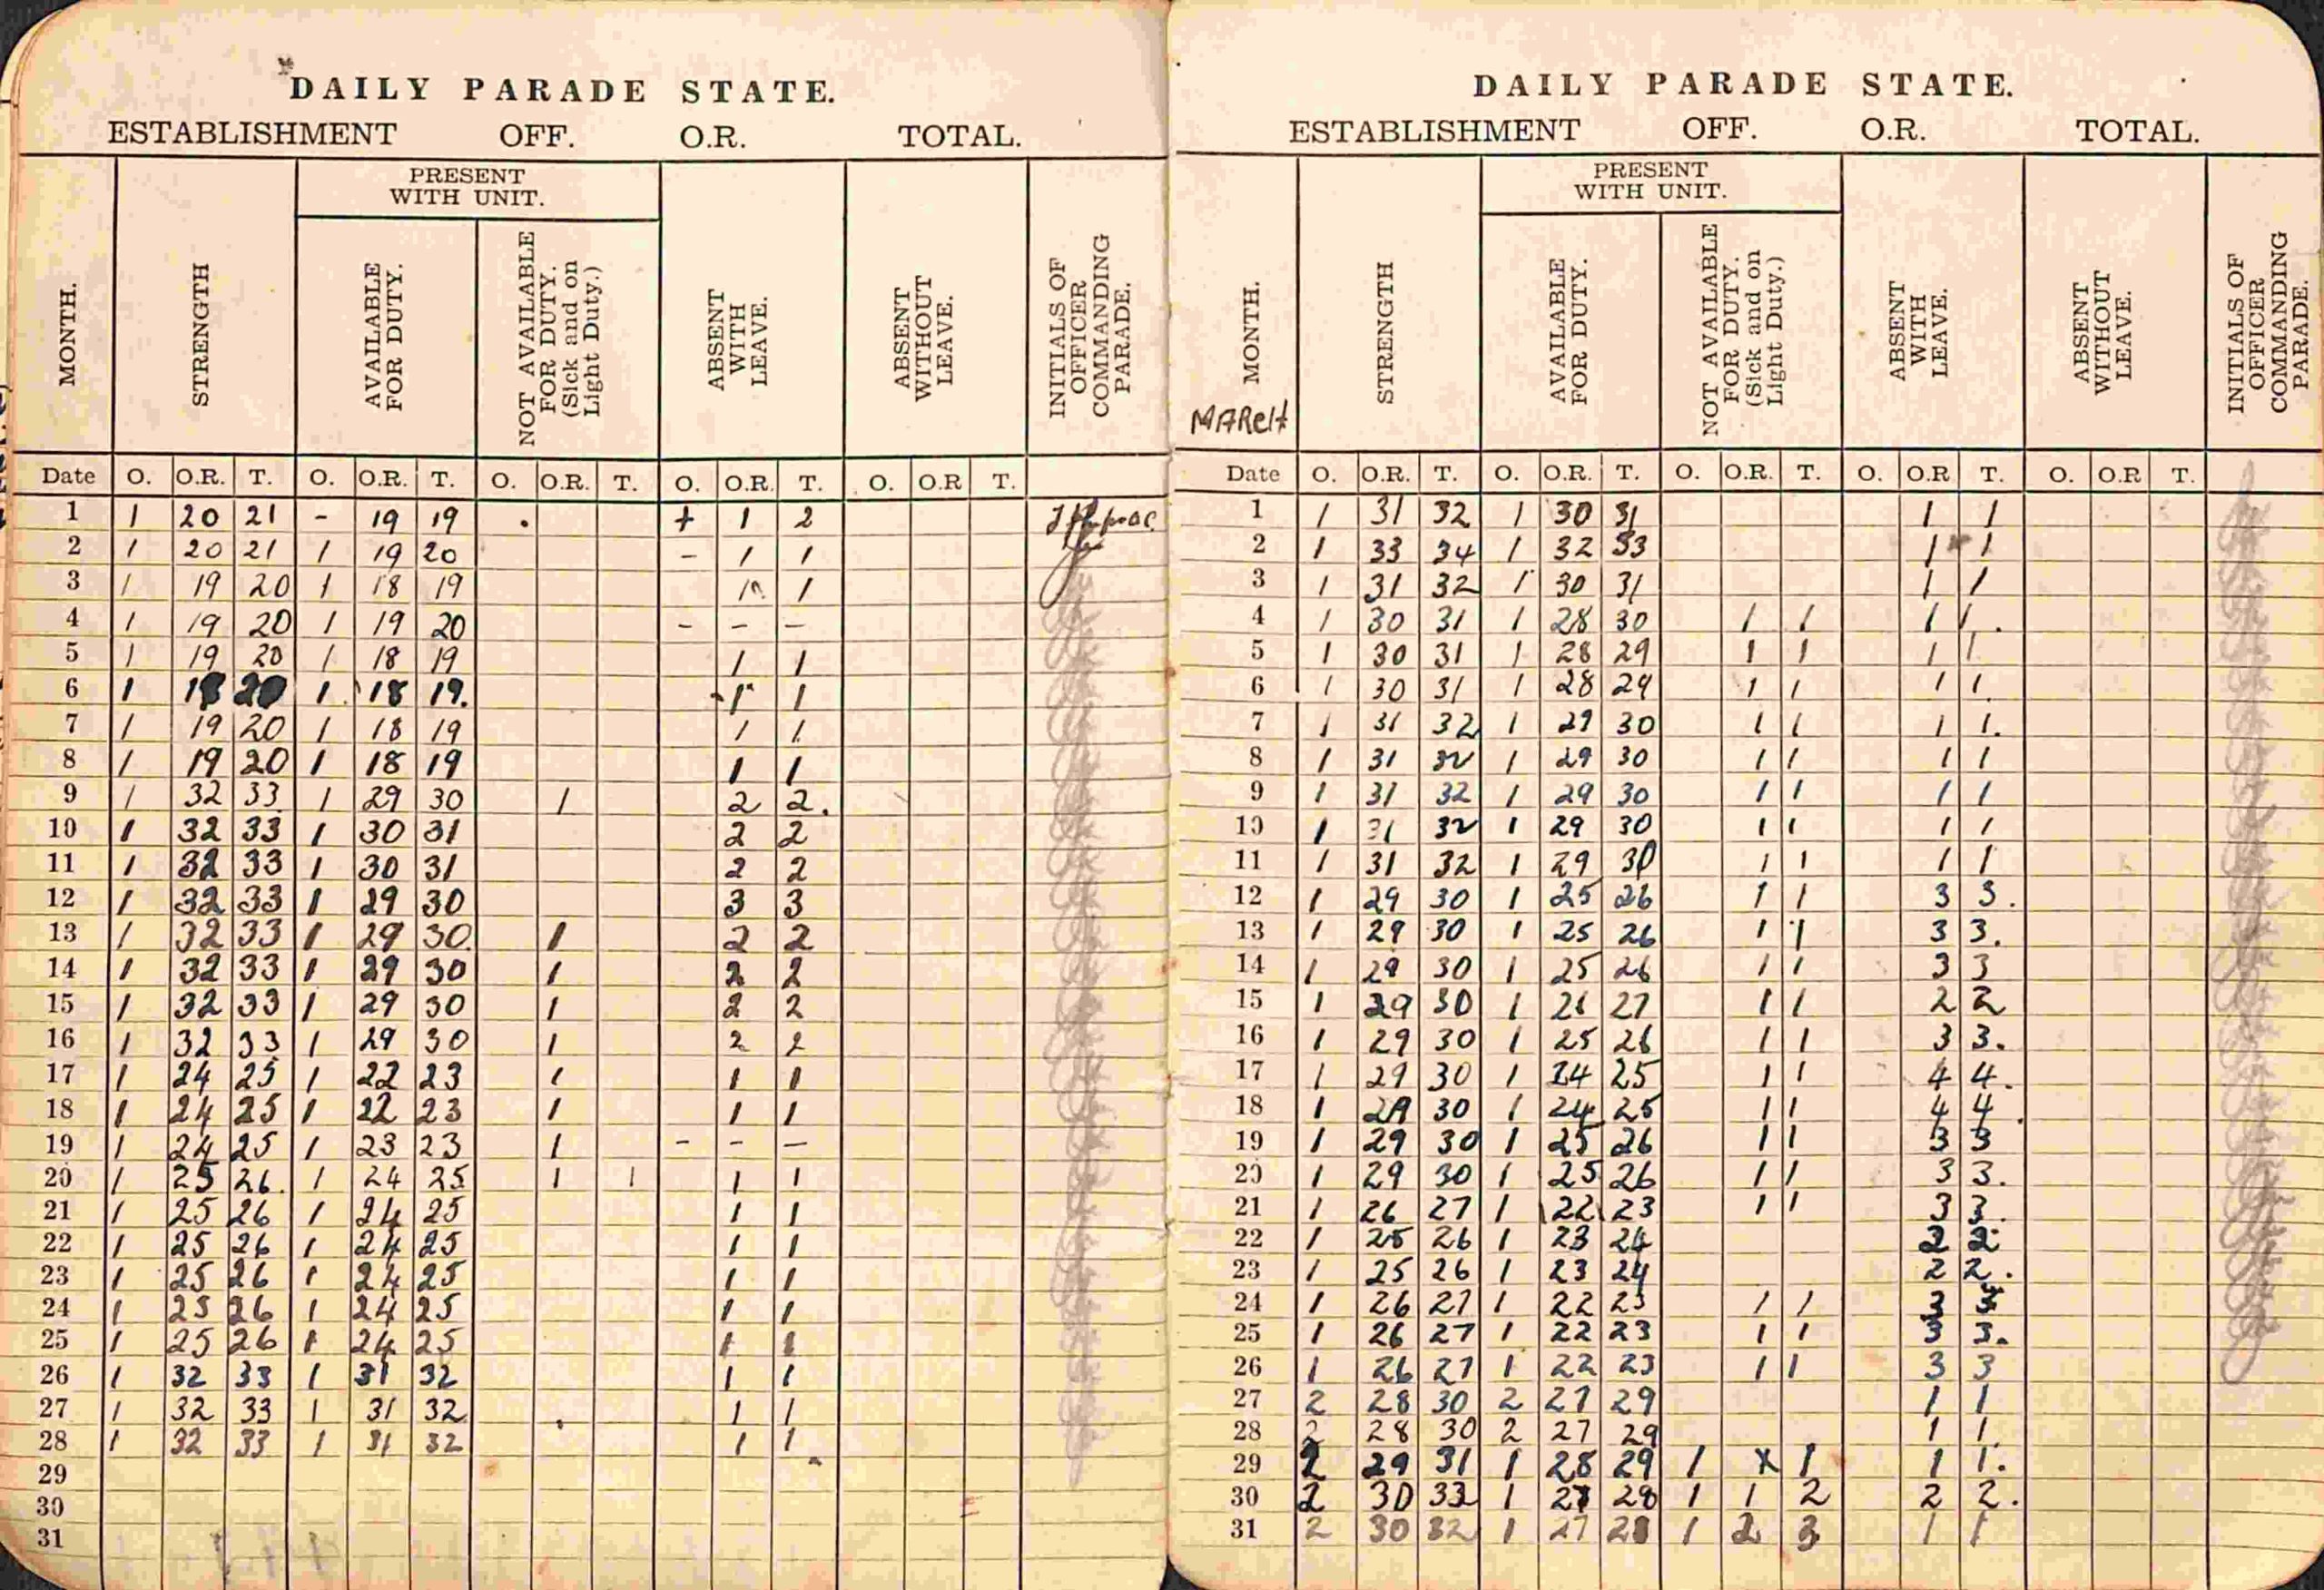 DAILY PARADE STATE.
ESTABLISHMENT OFF. O.R. TOTAL.
PRESENT WITH UNIT.
MONTH. STRENGTH AVAILABLE FOR DUTY. NOT AVAILABLE FOR DUTY. (Sick and on Light Duty.) ABSENT WITH LEAVE. ABSENT WITHOUT LEAVE. INITIALS OF OFFICER COMMANDING PARADE.
Date O. O.R. T. O. O.R. T. O. O.R. T. O. O.R. T. O. O.R T.
1 1 20 21 - 19 19 . + 1 2
2 1 20 21 1 19 20 - 1 1
3 1 19 20 1 18 19 1 1
4 1 19 20 1 19 20 - - -
5 1 19 20 1 18 19 1 1
6 1 20 1 18 19. 1 1
7 1 19 20 1 18 19 1 1
8 1 19 20 1 18 19 1 1
9 1 32 33 1 29 30 1 2 2.
10 1 32 33 1 30 31 2 2
11 1 32 33 1 30 31 2 2
12 1 32 33 1 29 30 3 3
13 1 32 33 1 29 30 1 2 2
14 1 32 33 1 29 30 1 2 2
15 1 32 33 1 29 30 1 2 2
16 1 32 33 1 29 30 1 2 2
17 1 24 25 1 22 23 1 1 1
18 1 24 25 1 22 23 1 1 1
19 1 24 25 1 23 23 1 - - -
20 1 25 26. 1 24 25 1 1 1 1
21 1 25 26 1 24 25 1 1
22 1 25 26 1 24 25 1 1
23 1 25 26 1 24 25 1 1
24 1 25 26 1 24 25 1 1
25 1 25 26 1 24 25 1 1
26 1 32 33 1 31 32 1 1
27 1 32 33 1 31 32 1 1
28 1 32 33 1 31 32 1 1
29
30
31
DAILY PARADE STATE.
ESTABLISHMENT OFF. O.R. TOTAL.
PRESENT WITH UNIT.
MONTH. STRENGTH AVAILABLE FOR DUTY. NOT AVAILABLE FOR DUTY. (Sick and on Light Duty.) ABSENT WITH LEAVE. ABSENT WITHOUT LEAVE. INITIALS OF OFFICER COMMANDING PARADE.
MARCH
Date O. O.R. T. O. O.R. T. O. O.R. T. O. O.R T. O. O.R T.
1 1 31 32 1 30 31 1 1
2 1 33 34 1 32 33 1 1
3 1 31 32 1 30 31 1 1
4 1 30 31 1 28 30 1 1 1 1.
5 1 30 31 1 28 29 1 1 1 1
6 1 30 31 1 28 29 1 1 1 1.
7 1 31 32 1 29 30 1 1 1 1.
8 1 31 32 1 29 30 1 1 1 1
9 1 31 32 1 29 30 1 1 1 1
10 1 31 32 1 29 30 1 1 1 1
11 1 31 32 1 29 30 1 1 1 1
12 1 29 30 1 25 26 1 1 3 3.
13 1 29 30 1 25 26 1 1 3 3.
14 1 29 30 1 25 26 1 1 3 3
15 1 29 30 1 26 27 1 1 2 2
16 1 29 30 1 25 26 1 1 3 3.
17 1 29 30 1 24 25 1 1 4 4.
18 1 29 30 1 24 25 1 1 4 4.
19 1 29 30 1 25 26 1 1 3 3
20 1 29 30 1 25 26 1 1 3 3.
21 1 26 27 1 22 23 1 1 3 3.
22 1 25 26 1 23 24 2 2
23 1 25 26 1 23 24 2 2.
24 1 26 27 1 22 23 1 1 3 3
25 1 26 27 1 22 23 1 1 3 3.
26 1 26 27 1 22 23 1 1 3 3
27 2 28 30 2 27 29 1 1
28 2 28 30 2 27 29 1 1.
29 2 29 31 1 28 29 1 x 1 1 1.
30 2 30 33 1 27 28 1 1 2 2 2.
31 2 30 32 1 27 28 1 2 3 1 1